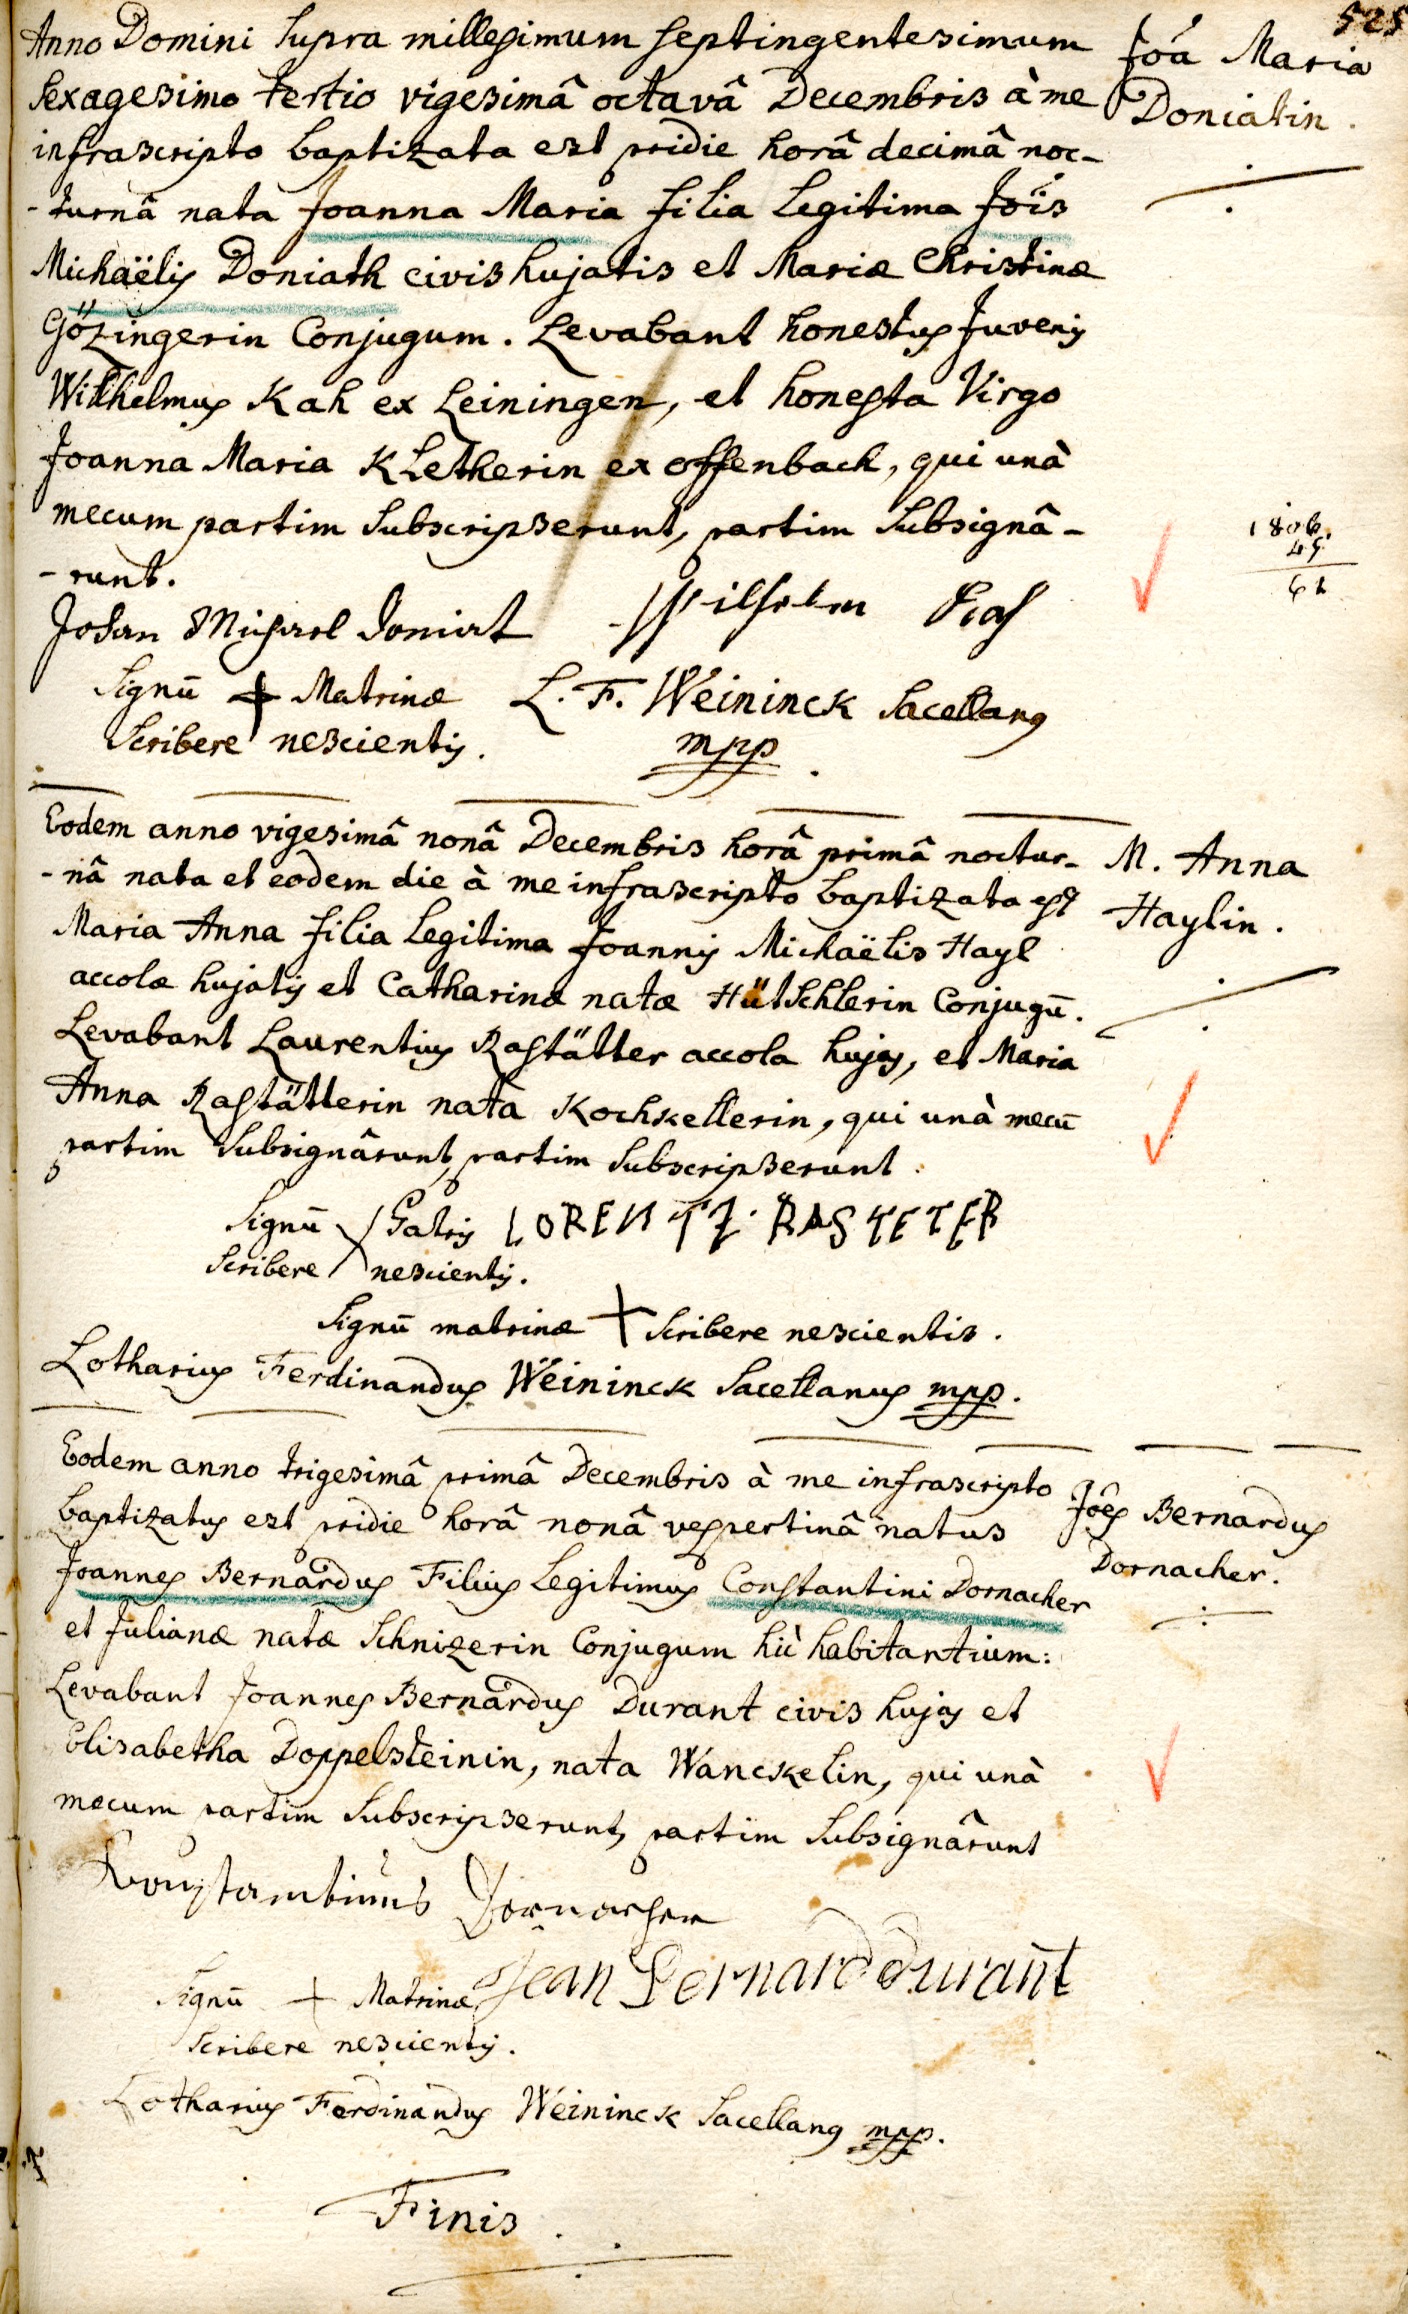 525
Anno Domini supra millesimum septingentesimum
Joa Maria
sexagesimo tertio vigesimâ octavâ Decembris à me
Doniatin.
infrascripto baptizata est pridie horâ decimâ noc-
-turnâ nata Joanna Maria filia legitima Jois
Michaëlis Doniath civis hujatis et Mariæ Christinæ
Gözingerin Conjugum. Levabant honestus Juvenis
Wilhelmus Kah ex Leiningen, et honesta Virgo
Joanna Maria Kletherin ex offenbach, qui unà
mecum partim subscripserunt, partim subsignâ-
-runt.
1806.
45
62
Johan Michael Doniat Wilhelm
Signū + Matrinæ L. F. Weininck Sacellanus
scribere nescientis. mpp.
Eodem anno vigesimâ nonâ Decembris horâ primâ noctur-
M. Anna
-nâ nata et eodem die à me infrascripto baptizata est
Haylin.
Maria Anna filia legitima Joannis Michaëlis Hayl
accolæ hujatis et Catharinæ natæ Hütschlerin Conjugū.
Levabant Laurentius Rastätter accola hujas, et Maria
Anna Rastätterin nata Kochkellerin, qui unà mecū
partim subsignârunt, partim subscripserunt.
Signū Patris LORENTZ RASTETER
scribere nescientis.
Signū matrinæ + scribere nescientis.
Lotharius Ferdinandus Weininck Sacellanus mpp.
Eodem anno trigesimâ primâ Decembris à me infrascripto
Joês Bernardus
baptizatus est pridie horâ nonâ vespertinâ natus
Dornacher.
Joannes Bernardus Filius legitimus Constantini Dornacher
et Julianæ natæ Schnizerin Conjugum hìc habitantium:
Levabant Joannes Bernardus Durant civis hujas et
Elisabetha Doppelsteinin, nata Wanckelin, qui unà
mecum partim subscripserunt, partim subsignârunt
Konstantinus Dornacher
Jean Bernard Durant
Signū + Matrinæ
scribere nescientis.
Lotharius Ferdinandus Weininck Sacellanus mpp.
Finis.